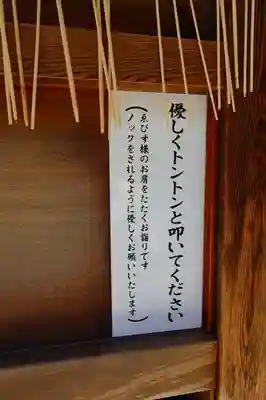 優しくトントンと叩いてください
（ゑびす様のお肩をたたくお詣りです
ノックをされるように優しくお願いいたします）